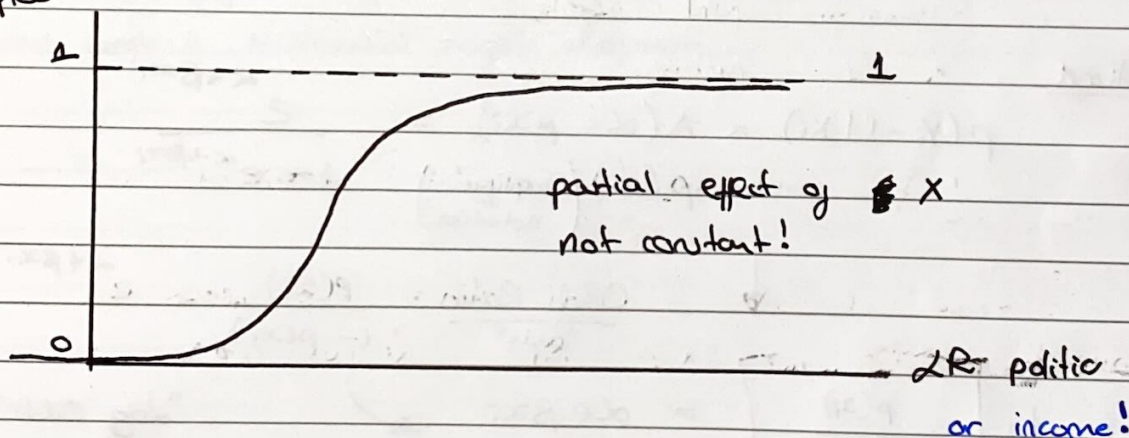 1
1
partial effect of X
not constant!
0
LR politic
or income!